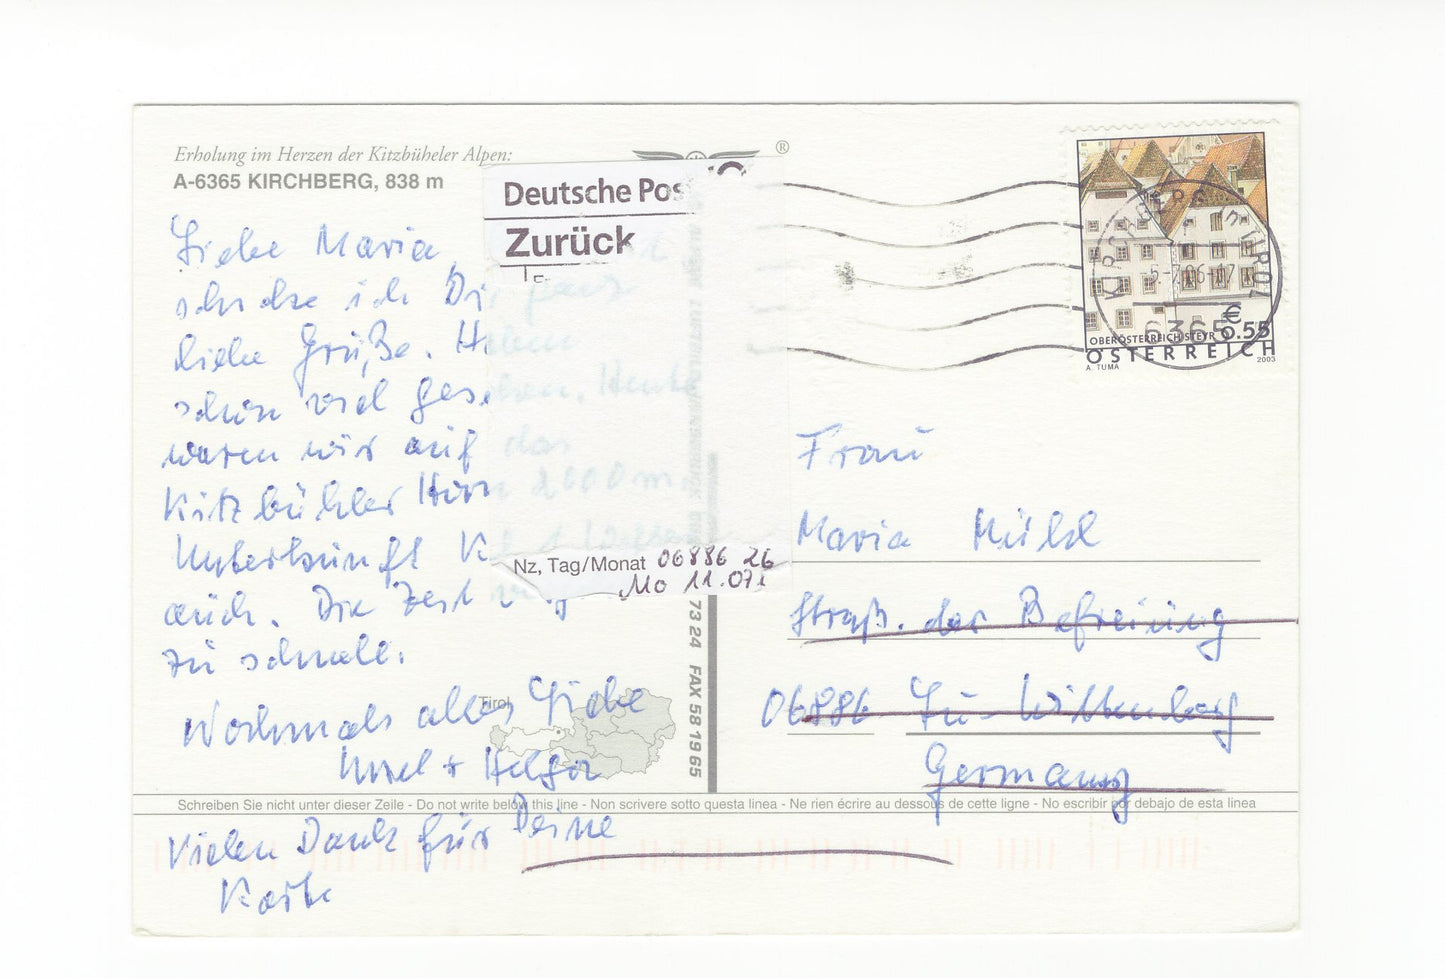 Erholung im Herzen der Kitzbüheler Alpen:
A-6365 KIRCHBERG, 838 m
®
Deutsche Pos
Zurück
Liebe Maria
schicke ich Di, ganz
liebe Grüße. Haben
schon viel gesehen. Heute
waren wir auf das
Kitzbühler Horn 2000m
Unterkunft
auch. Die Zeit
zu schnell.
Nochmals alles Liebe
+ Helga
Vielen Dank für Deine
Karte
Nz, Tag/Monat 06886 26
Mo 11.07.
73 24 FAX 58 19 65
Tirol
KIRCHBERG IN TIROL
-5.-7.06-17
6365
€0.55
OBERÖSTERREICH/STEYR
ÖSTERREICH
A. TUMA
2003
Frau
Maria
Straß. der Befreiung
06886 Lu-Wittenberg
Germany
Schreiben Sie nicht unter dieser Zeile - Do not write below this line - Non scrivere sotto questa linea - Ne rien écrire au dessous de cette ligne - No escribir por debajo de esta linea